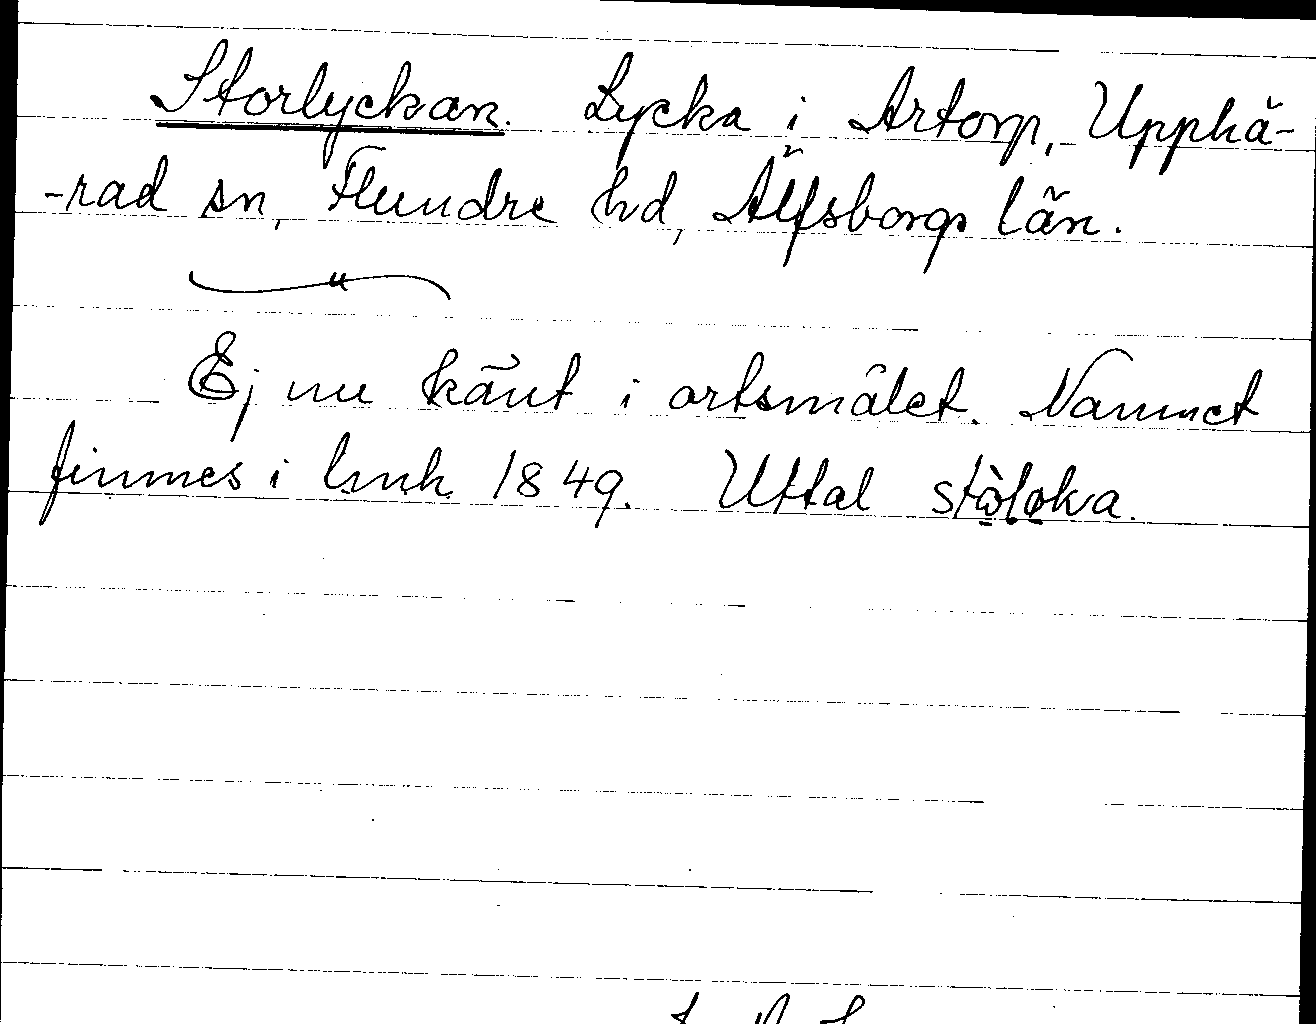 Storlyckan. Lycka i Artorp, Upphä-
-rad sn, Flundre hd, Älfsborgs län.
Ej nu känt i ortsmålet. Namnet
finnes i lmh 1849. Uttal stòloka.